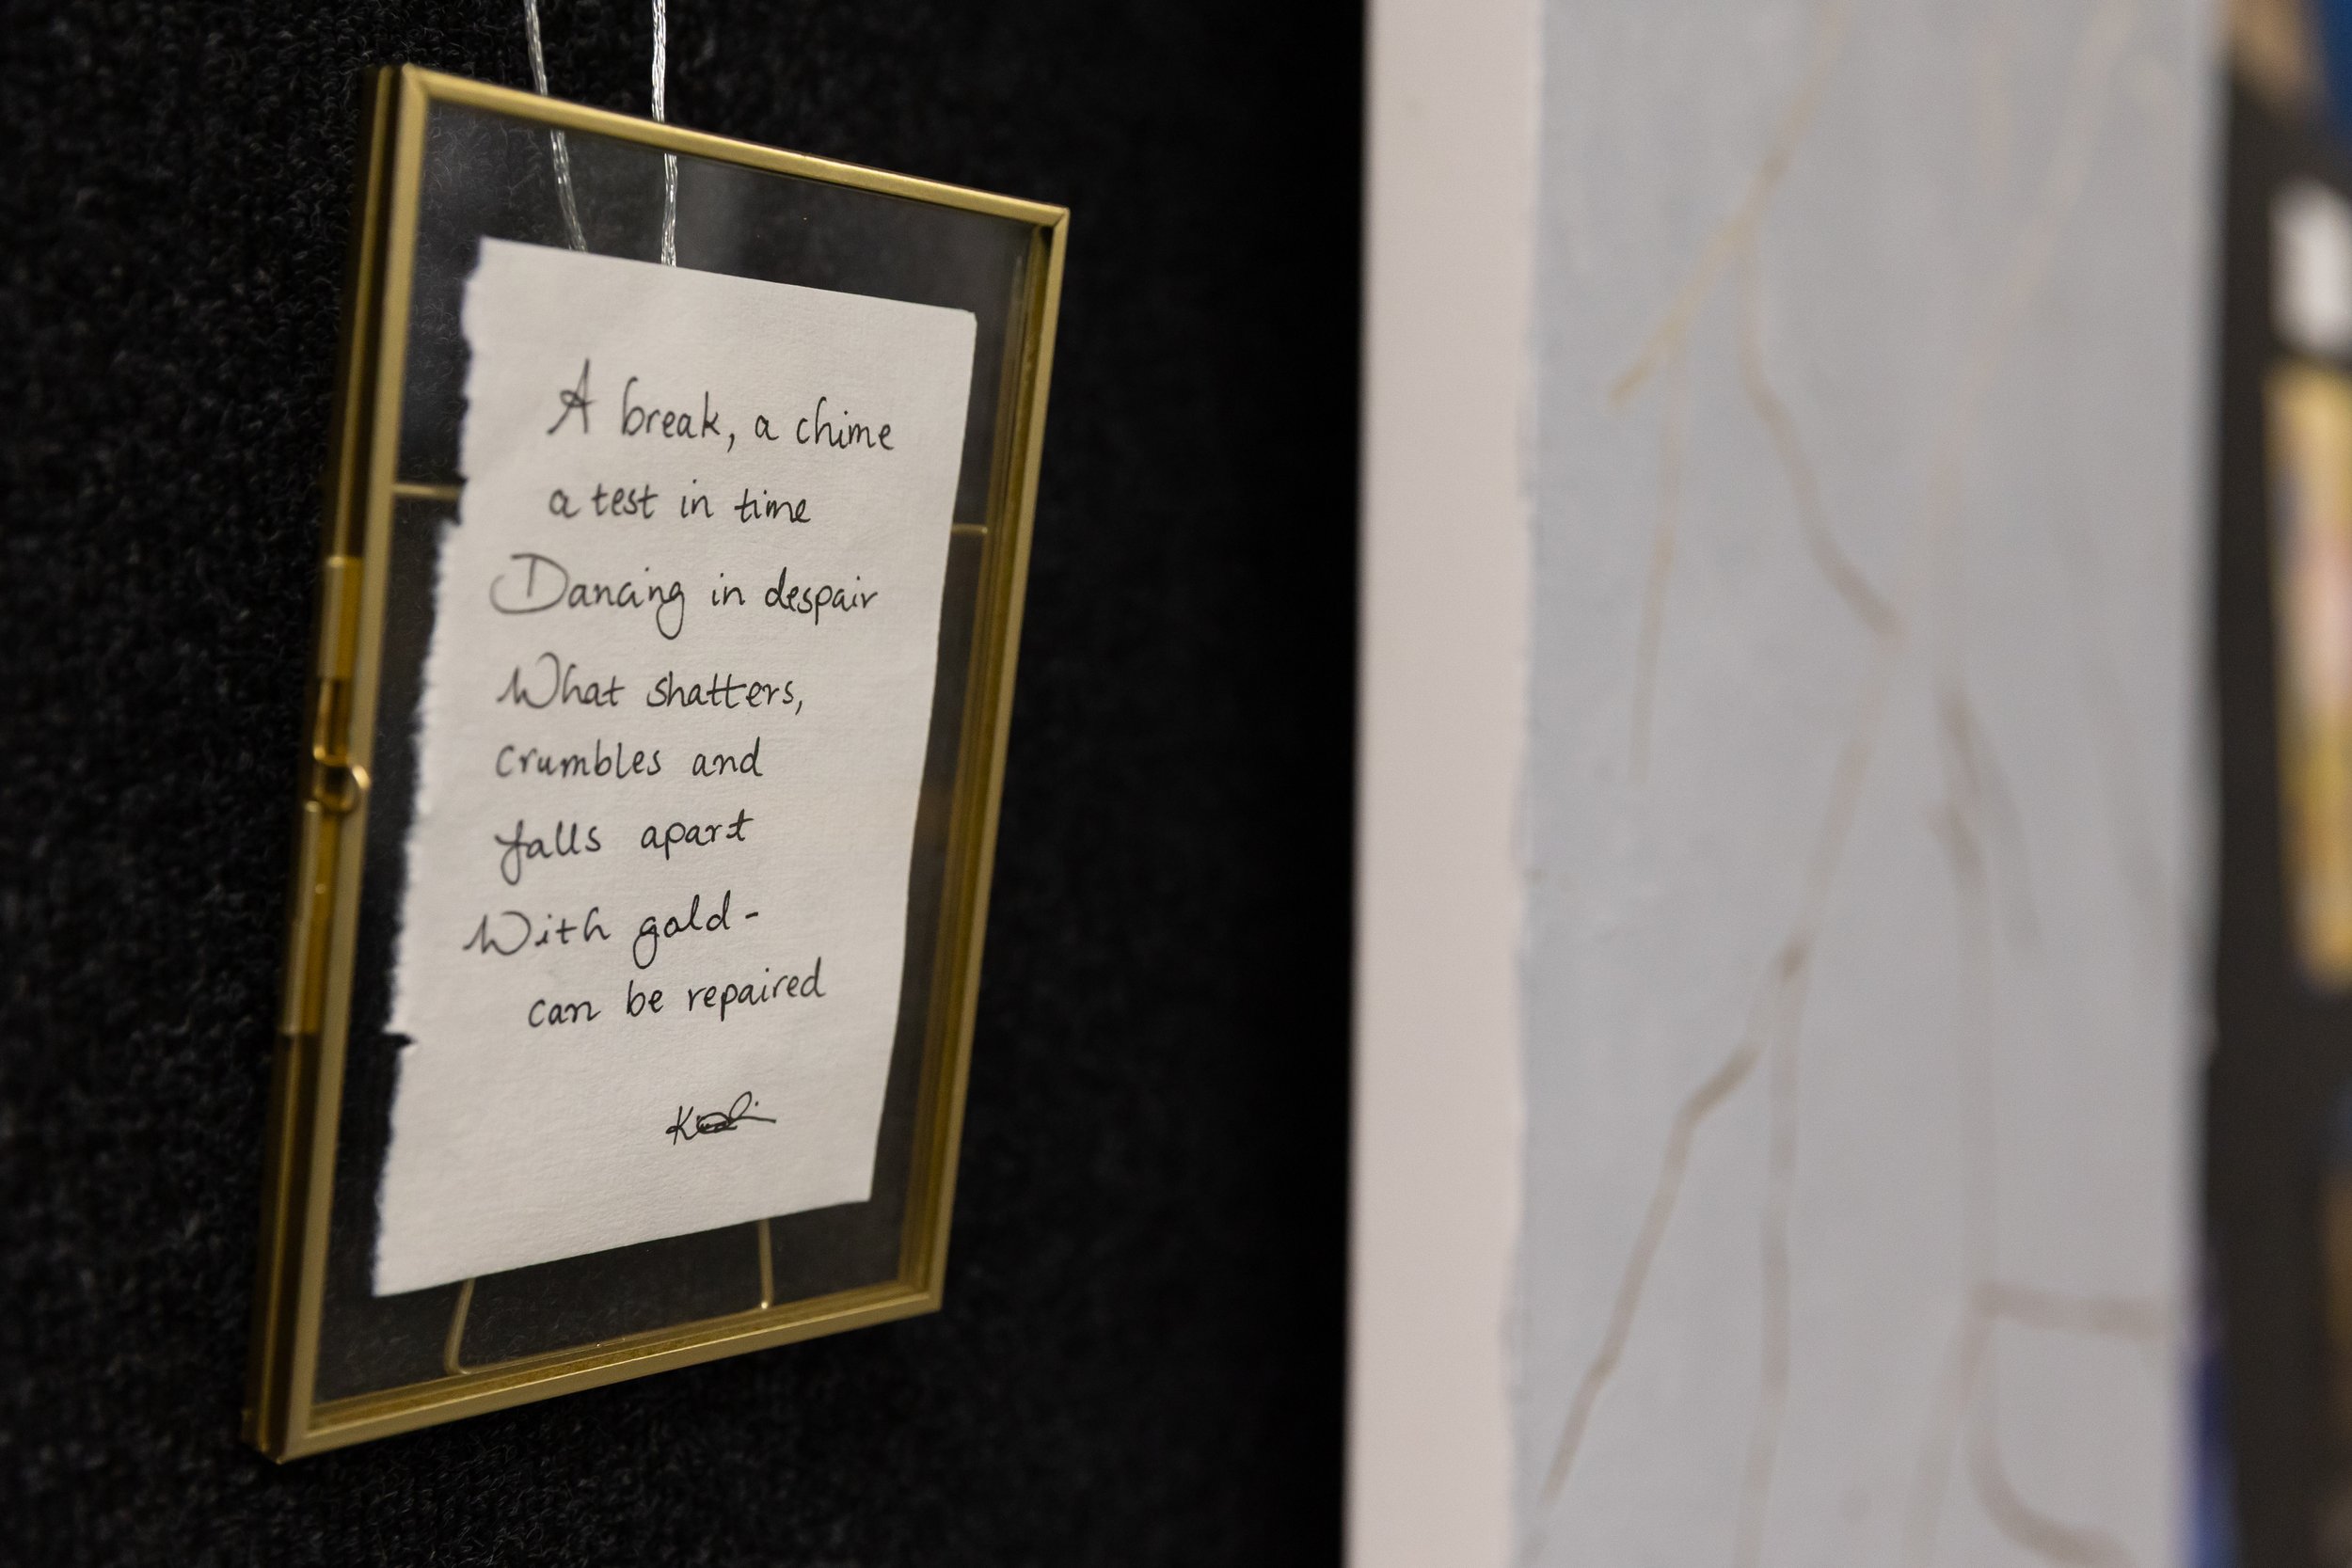 A break, a chime
a test in time
Dancing in despair
What shatters,
crumbles and
falls apart
With gold-
can be repaired